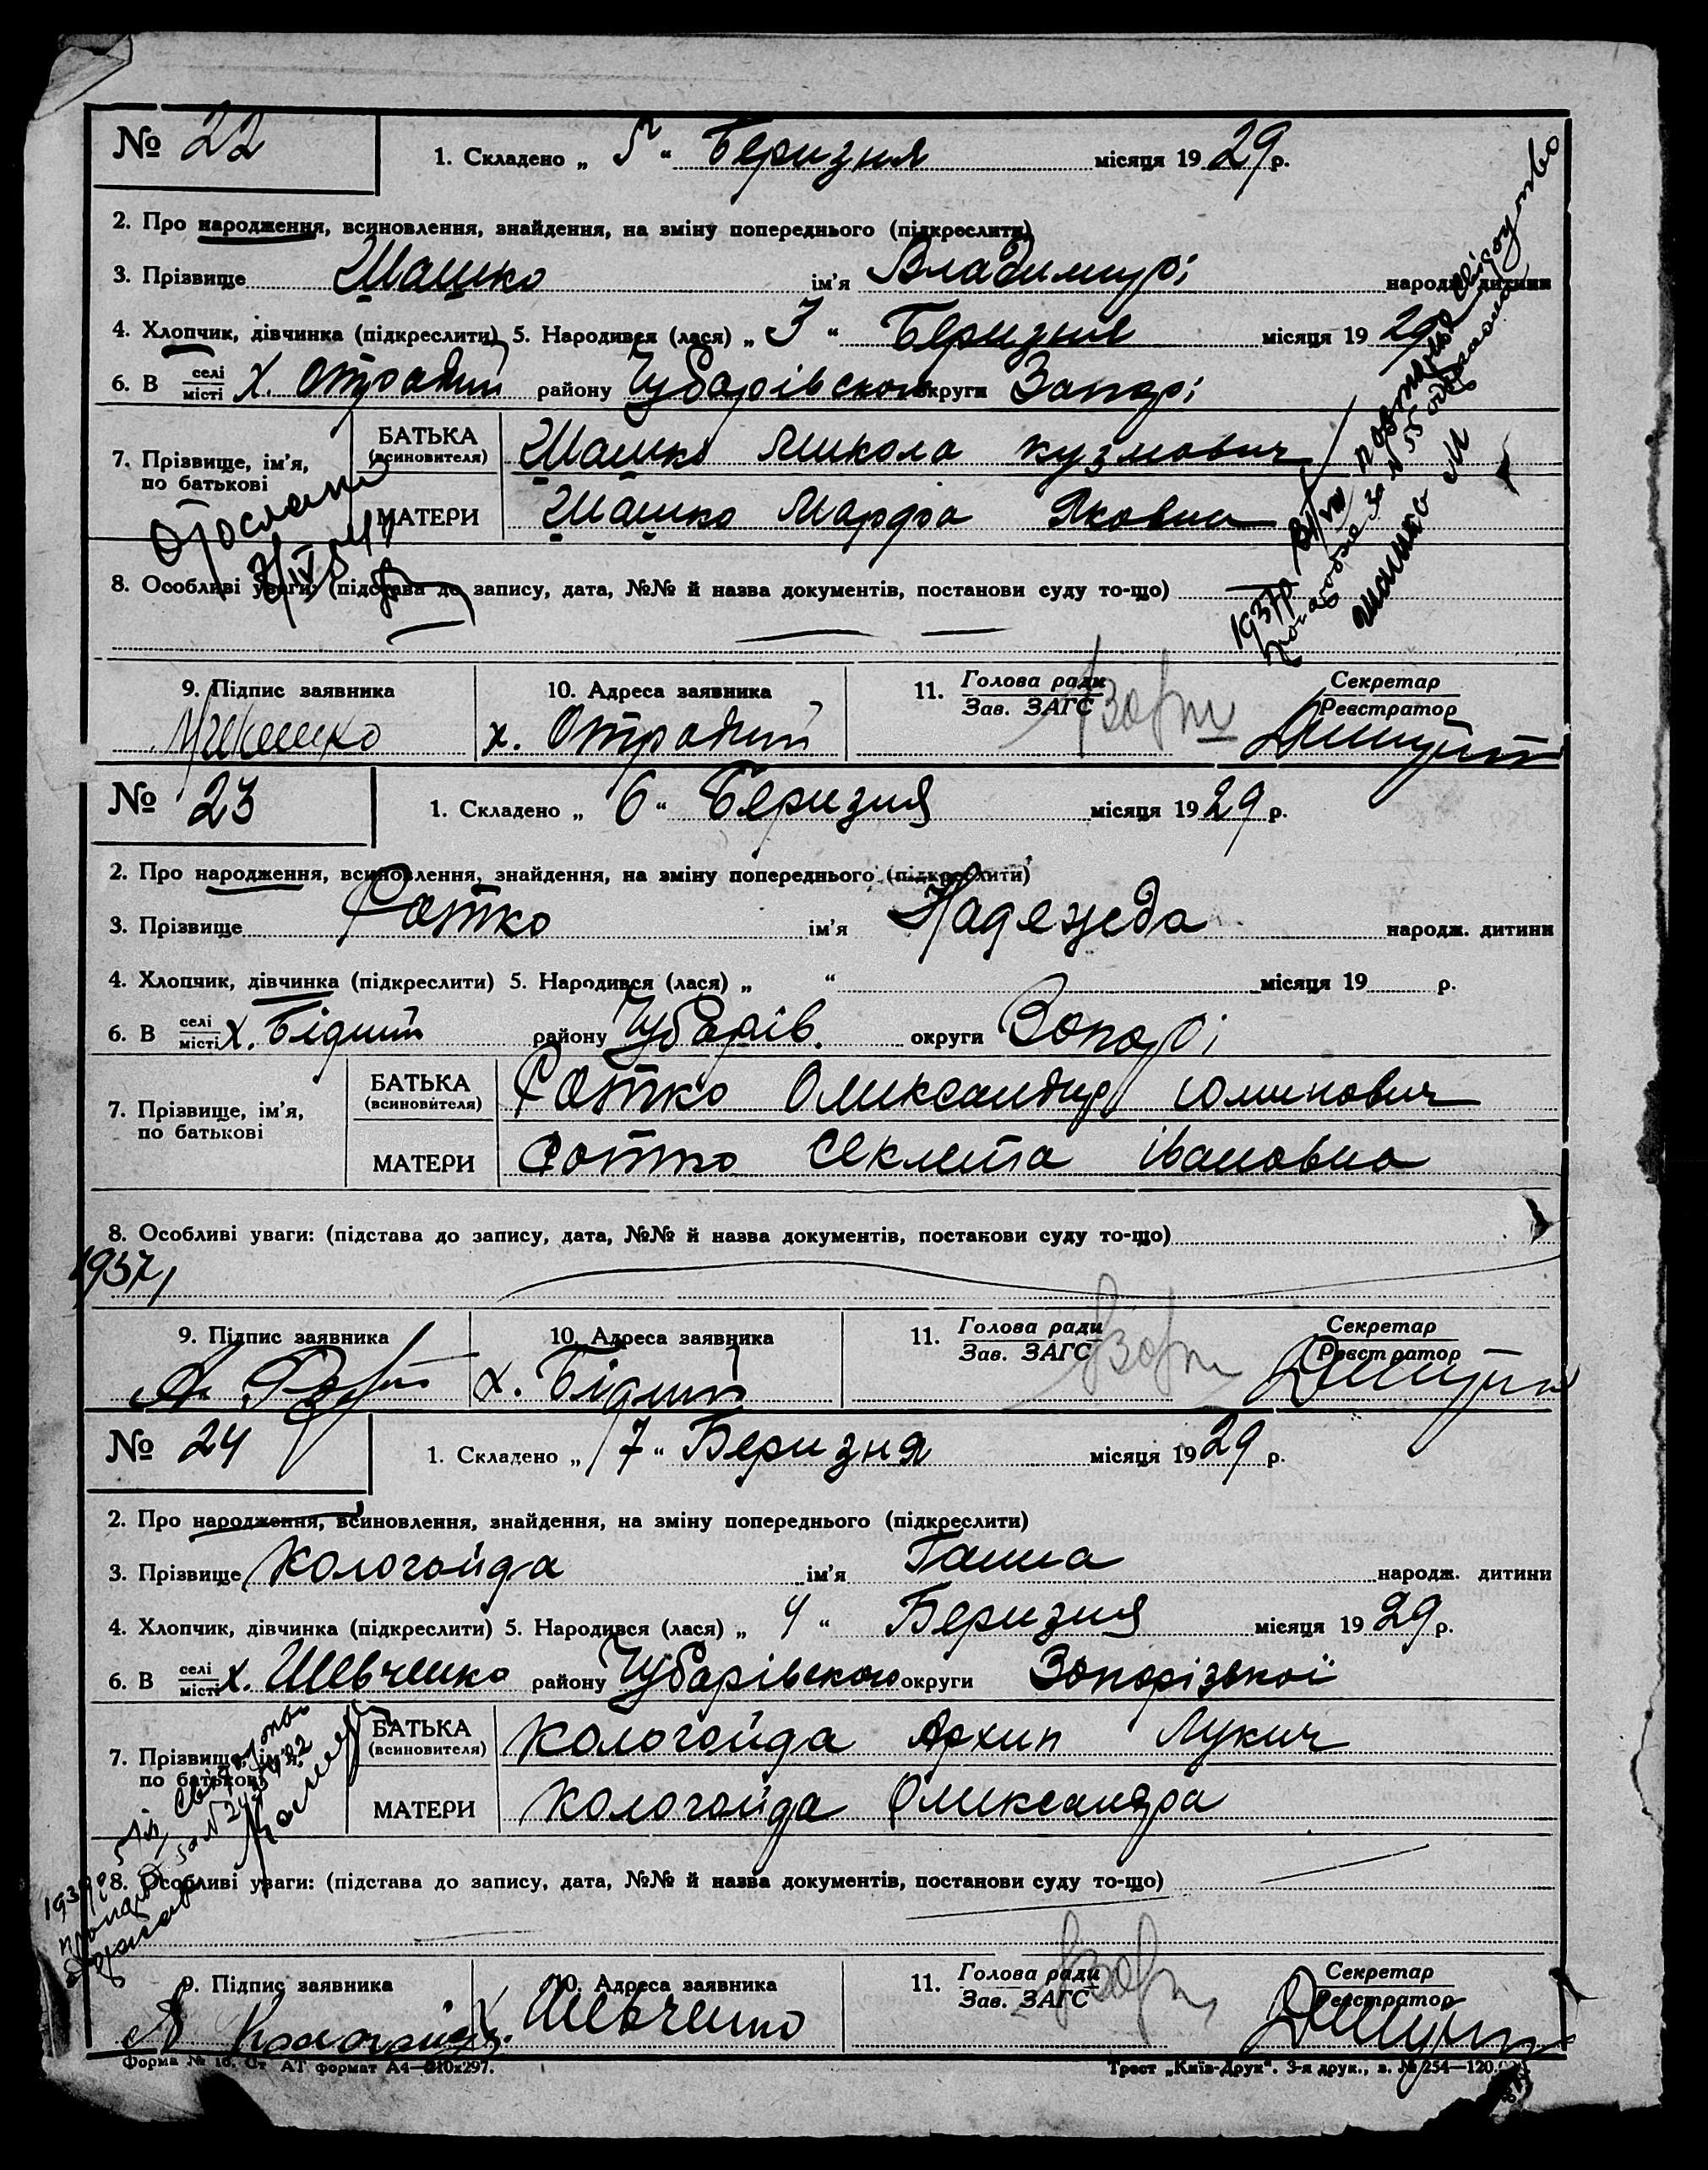 № 22
1. Складено „ 5 “ Березня місяця 1929 р.
2. Про народження, всиновлення, знайдення, на зміну попереднього (підкреслити)
3. Прізвище Шашко ім'я Владимирі народж. дитини
4. Хлопчик, дівчинка (підкреслити) 5. Народився (лася) „ 3 “ Березня місяця 1929
6. В селі місті х. Отрадний району Чубарівского округи Запорі
7. Прізвище, ім'я, по батькові
БАТЬКА (всиновителя) Шашко Микола Кузмович
МАТЕРИ Шашко Марфа Яковна
Отослано
8. Особливі уваги: (підстава до запису, дата, №№ й назва документів, постанови суду то-що)
1937р. повторне свідоцтво
за № 55
Шашко М
9. Підпис заявника
10. Адреса заявника х. Отрадний
11. Голова ради Зав. ЗАГС
Секретар Реєстратор
№ 23
1. Складено „ 6 “ Березня місяця 1929 р.
2. Про народження, всиновлення, знайдення, на зміну попереднього (підкреслити)
3. Прізвище Фотко ім'я Надежда народж. дитини
4. Хлопчик, дівчинка (підкреслити) 5. Народився (лася) „ “ місяця 19 р.
6. В селі місті х. Бідний району Чубарів. округи Запорі
7. Прізвище, ім'я, по батькові
БАТЬКА (всиновителя) Фотко Олександр
МАТЕРИ Фотко Секлета Івановна
8. Особливі уваги: (підстава до запису, дата, №№ й назва документів, постанови суду то-що)
1937
9. Підпис заявника
10. Адреса заявника х. Бідний
11. Голова ради Зав. ЗАГС
Секретар Реєстратор
№ 24
1. Складено „ 7 “ Березня місяця 1929 р.
2. Про народження, всиновлення, знайдення, на зміну попереднього (підкреслити)
3. Прізвище Кологойда ім'я Ганна народж. дитини
4. Хлопчик, дівчинка (підкреслити) 5. Народився (лася) „ 4 “ Березня місяця 1929 р.
6. В селі місті х. Шевченко району Чубарівского округи Запорізької
7. Прізвище, ім'я, по батькові
БАТЬКА (всиновителя) Кологойда Архип Лукич
МАТЕРИ Кологойда Олександра
8. Особливі уваги: (підстава до запису, дата, №№ й назва документів, постанови суду то-що)
9. Підпис заявника А Кологойда
10. Адреса заявника х Шевченко
11. Голова ради Зав. ЗАГС
Секретар Реєстратор
Форма № 16. Ст АТ формат А4—210х297.
Трест „Київ-Друк“. 3-я друк., з. № 254—120.